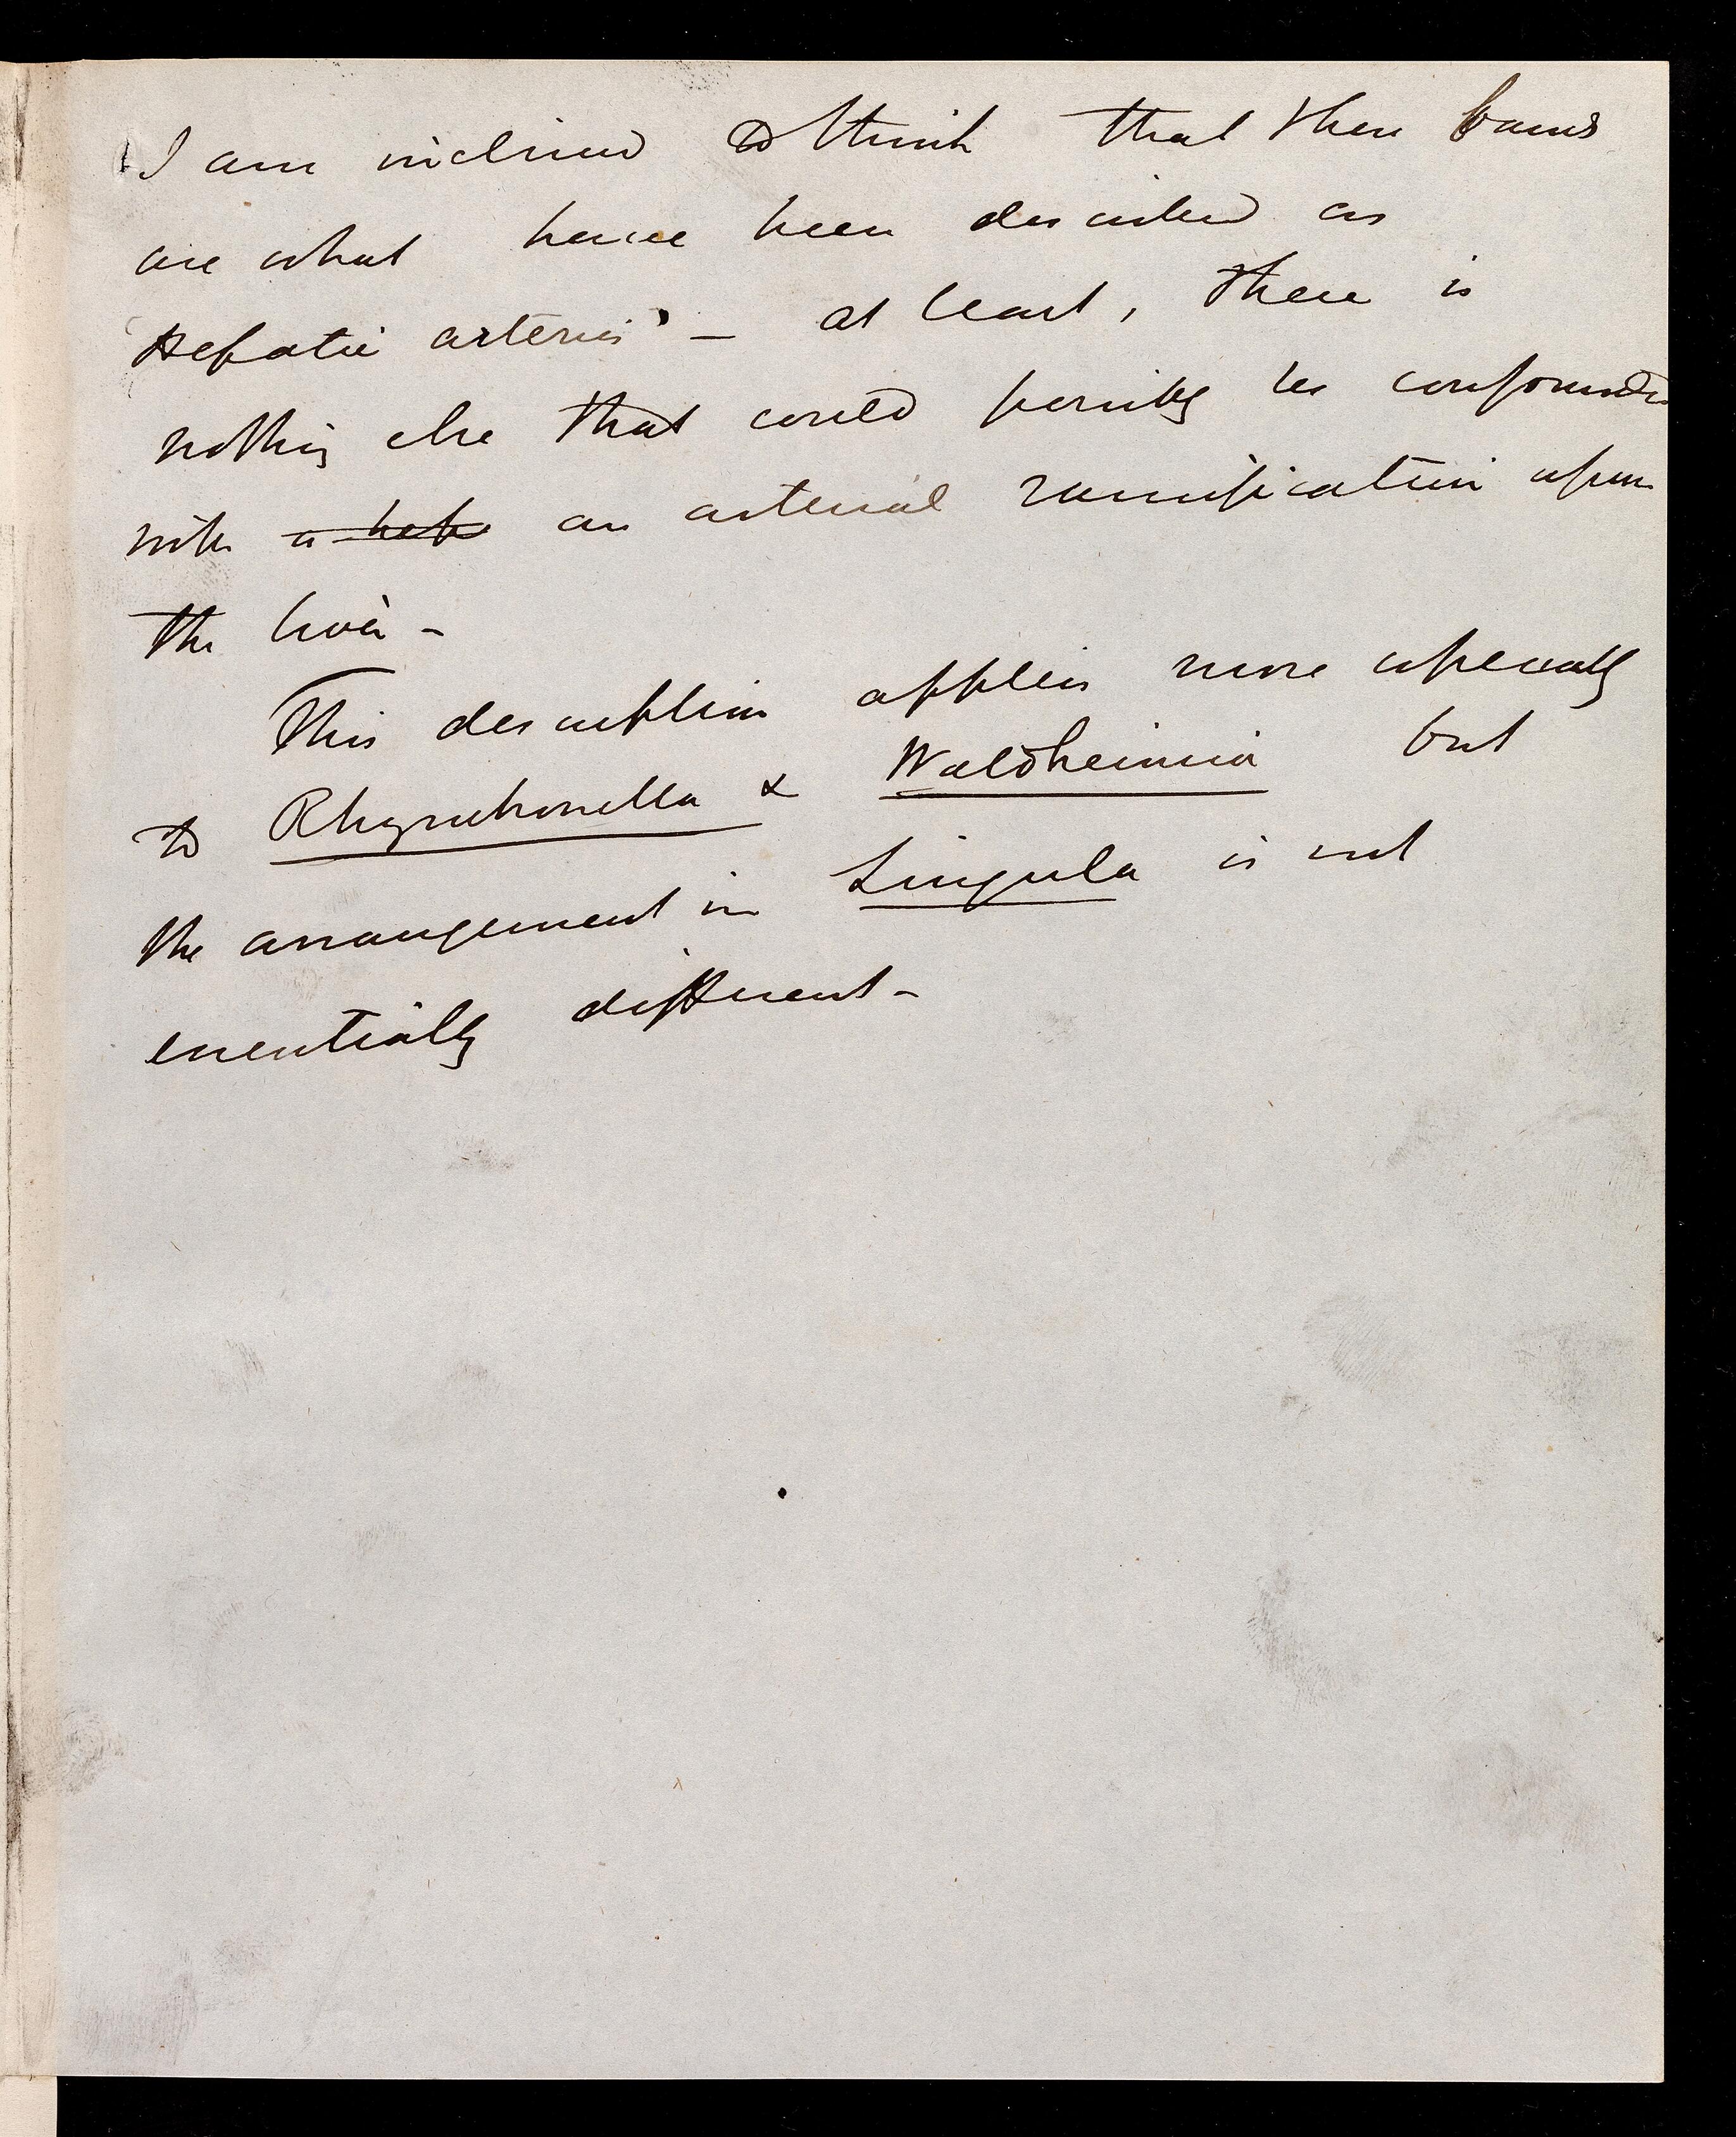 I am inclined to think that these bands
are what have been described as
'Hepatic arteries' — at least, there is
nothing else that could possibly be confounded
with a hep an arterial ramification upon
the liver —
This description applies more especially
to Rhynchonella & Waldheimia but
the arrangement in Lingula is not
essentially different —